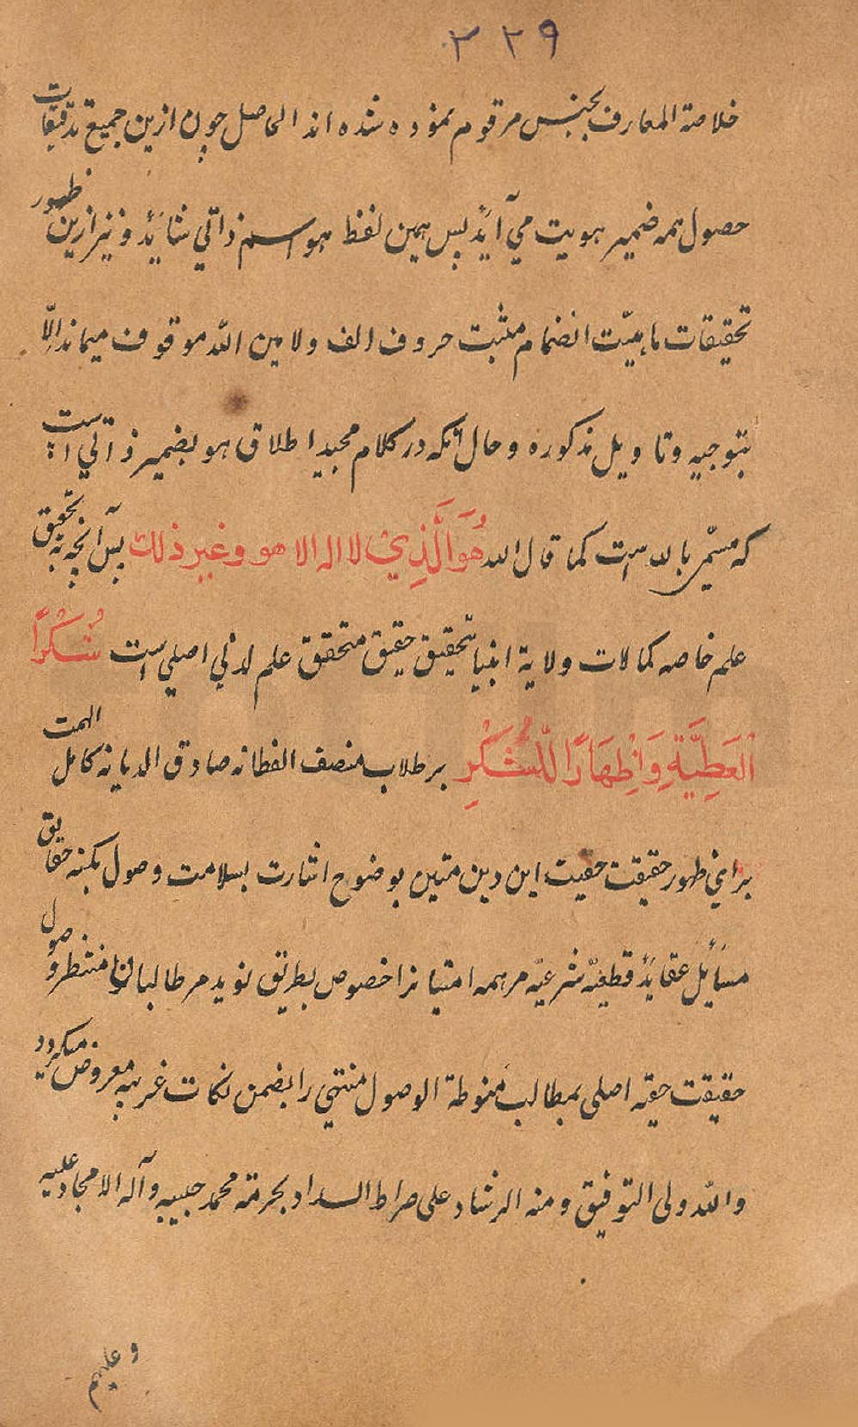 ٣٢٩
خلاصة المعارف بجنس مرقوم نموده شده اند الحاصل چون ازین جمیع تدقیقات
حصول همه ضمیر هویت می آید پس همین لفظ هو اسم ذاتی شاید و نیز ازین ظهور
تحقیقات ماهیّت انضمام مثبت حروف الف ولامین اللّه موقوف میماند الّا
بتوجیه وتاویل مذکوره وحال آنکه در کلام مجید اطلاق هو بضمیر ذاتی است
که مسمّی بالله است کما قال الله هُوَ الَّذِي لا اله الا هو وغیر ذلك پس آنچه به تحقیق
علم خاصه کمالات ولایة انبیا بتحقیق حقیق متحقق علم لدنی اصلی است شُكْرًا
الْعَطِيَّةِ وَاِظْهَارًا لِلشُّكْرِ بر طلاب منصف الفطانه صادق الدیانه کامل الهمت
برای ظهور حقیقت حقیت این دین متین بوضوح اشارت بسلامت وصول بکنه حقایق
مسایل عقاید قطعیّه شرعیّه مرهمه امتیاز اخصوص بطریق نوید مر طالبان منتظر وصول
حقیقت حقه اصلی بمطالب منوطة الوصول منتهی را بضمن نکات غریبه معروض میگردد
واللّه ولی التوفیق ومنه الرشاد علی صراط السداد بحرمة محمد حبیبه وآله الامجاد علیه
وعلیهم